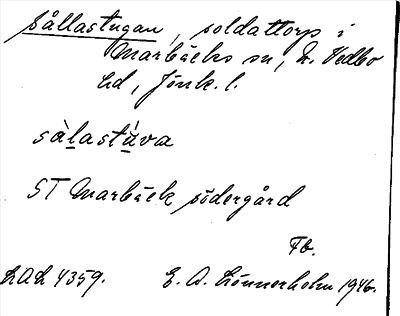 Sållastugan, soldattorp i
Marbäcks sn, N. Vedbo
hd, Jönk. l.
sàlastùva
ST Marbäck södergård
Fb.
LAL 4359. E. A. Lönnerholm 1946.